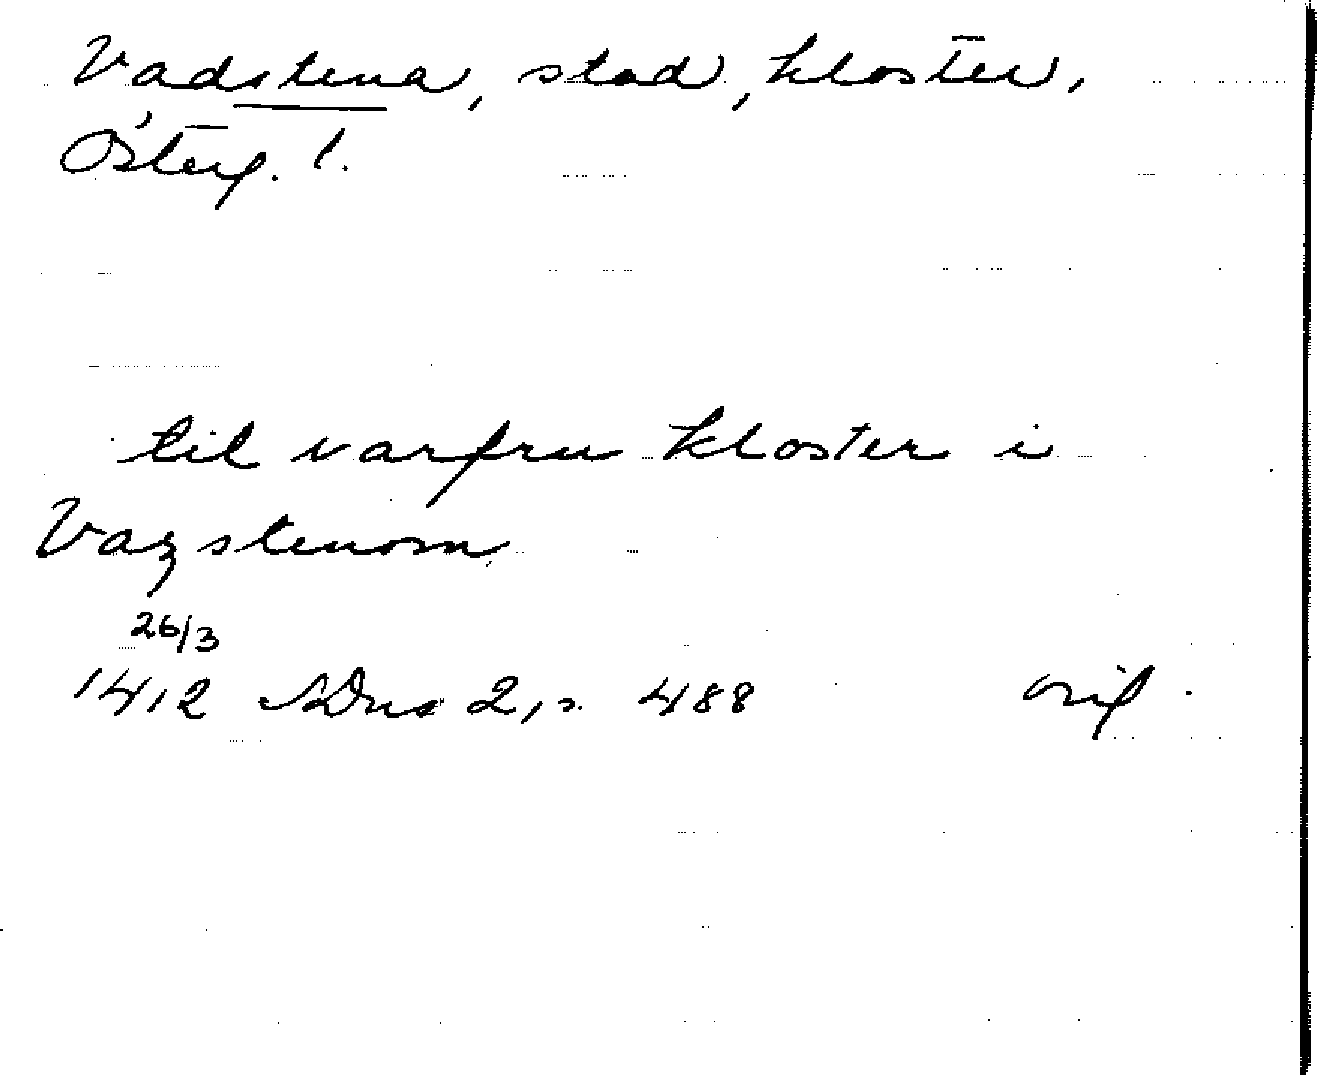 Vadstena, stad, kloster,
Österg. l.
til varfru kloster i
Vazstenom
26/3
1412 SDns 2, s. 488 orig.